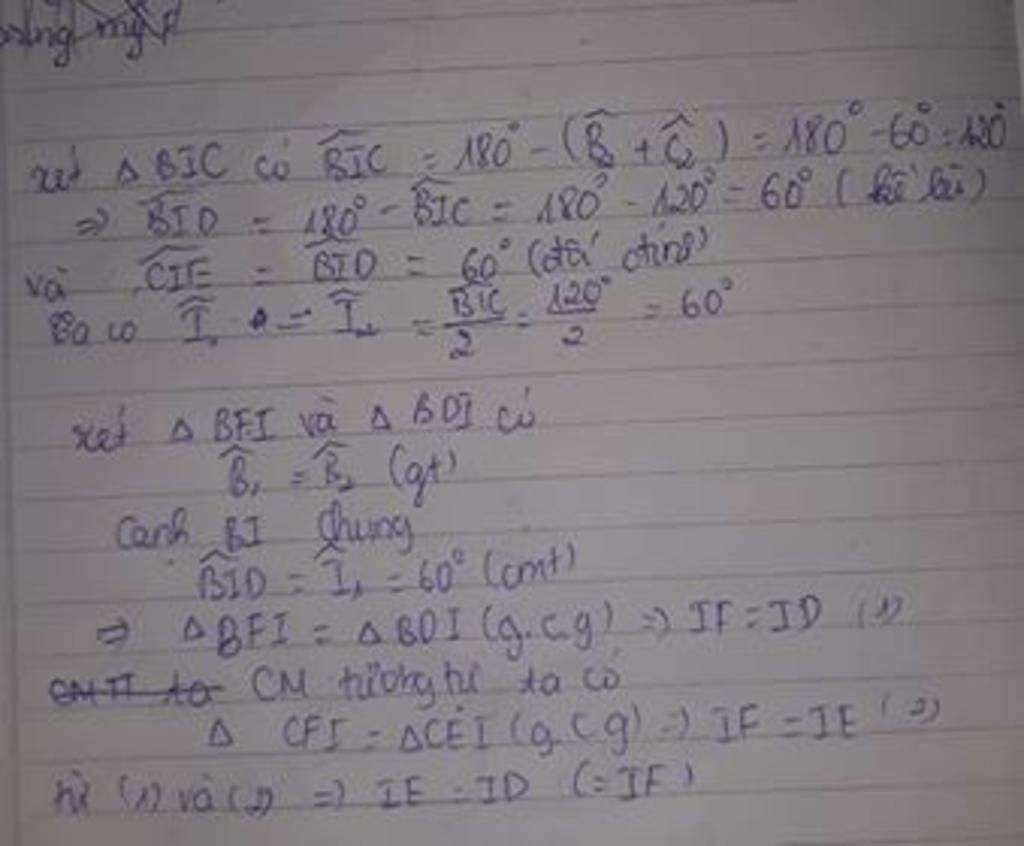 xét Δ BIC có \widehat{BIC} = 180° - (\widehat{B}₂ + \widehat{C}₂) = 180° - 60° = 120°
⇒ \widehat{BID} = 180° - \widehat{BIC} = 180° - 120° = 60° (kề bù)
và \widehat{CIE} = \widehat{BID} = 60° (đối đỉnh)
Ta có \widehat{I}₁ = \widehat{I}₂ = \frac{\widehat{BIC}}{2} = \frac{120°}{2} = 60°
xét Δ BFI và Δ BDI có
\widehat{B}₁ = \widehat{B}₂ (gt)
Cạnh BI chung
\widehat{BID} = \widehat{I}₁ = 60° (cmt)
⇒ Δ BFI = Δ BDI (g.c.g) ⇒ IF = ID (1)
CM tương tự ta có
Δ CFI = Δ CEI (g.c.g) ⇒ IF = IE (2)
từ (1) và (2) ⇒ IE = ID (= IF)